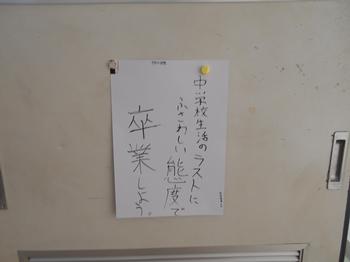 中学校生活のラストに
ふさわしい態度で
卒業しよう。